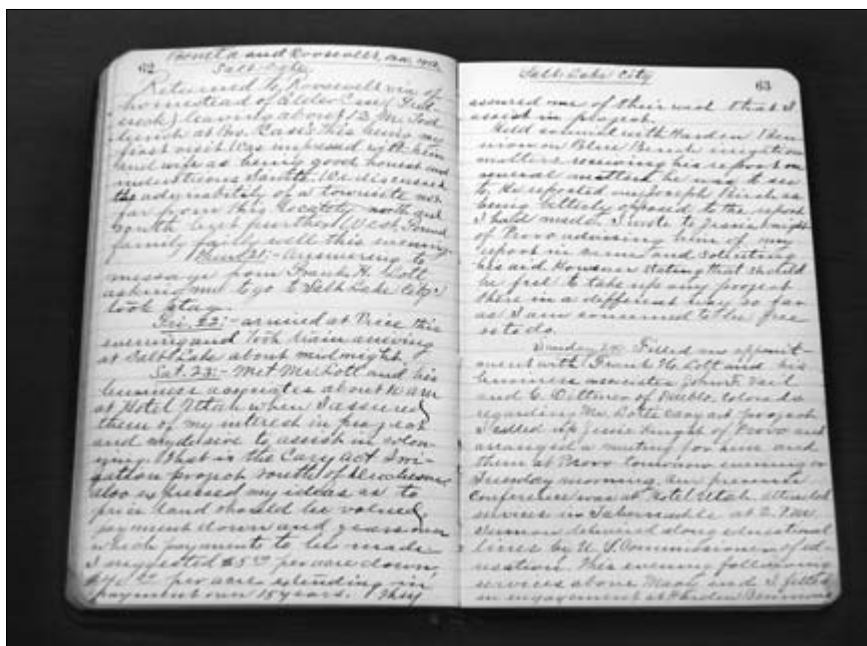 62 Boneta and Roosevelt, 1912
Salt Lake
Returned to Roosevelt via of
homestead of Elder Case
leaving about 12 M. Took
lunch at Bro. Case's this being my
first visit Was impressed with him
and wife as being good honest and
industrious Saints. We discussed
the advisability of a townsite not
far from this locality north and
south but further West Found
family fairly well this evening.
Thur. 21:- answering to
message from Frank H. Lott
asking me to go to Salt Lake City
took stag.
Fri. 22:- arrived at Price this
evening and took train arriving
at Salt Lake about midnight.
Sat. 23:- Met Mr. Lott and his
business about 10 am
at Hotel Utah when I assured
them of my interest in project
and my desire to assist in colon-
izing. That is the Cary act Irri-
gation project South of
also expressed my ideas as to
price land should be valued
payment down and years on
which payments to be made
I suggested $5.00 per acre down
per acre extending in
payment over 15 years. They
Salt Lake City
63
assured me of their wish that I
assist in project.
Held council with Harden Ben-
nion on Blue Bench irrigation
matters receiving his report on
several matters he was to see
to. He reported Joseph Birch as
being bitterly opposed to the report
I had made. I wrote to Jesse Knight
of Provo advising him of my
report in and soliciting
his aid However stating that should
be free to take up any project
there in a different way so far
as I am concerned to be free
so to do.
Sunday 24: Filled an appoint-
ment with Frank H. Lott and his
business associates John F. Vail
and C. Dittmer of Pueblo, Colorado
regarding Mr. Lotts Cary act project
I called up Jesse Knight of Provo and
arranged a meeting for him and
them at Provo tomorrow evening or
Tuesday morning. Our present
Conference was at Hotel Utah attended
services in Tabernacle at 2. P.M.
Sermon delivered along educational
lines by U. S. Commissioner of ed-
ucation. This evening following
services above and I filled
an engagement at Harden Bennions